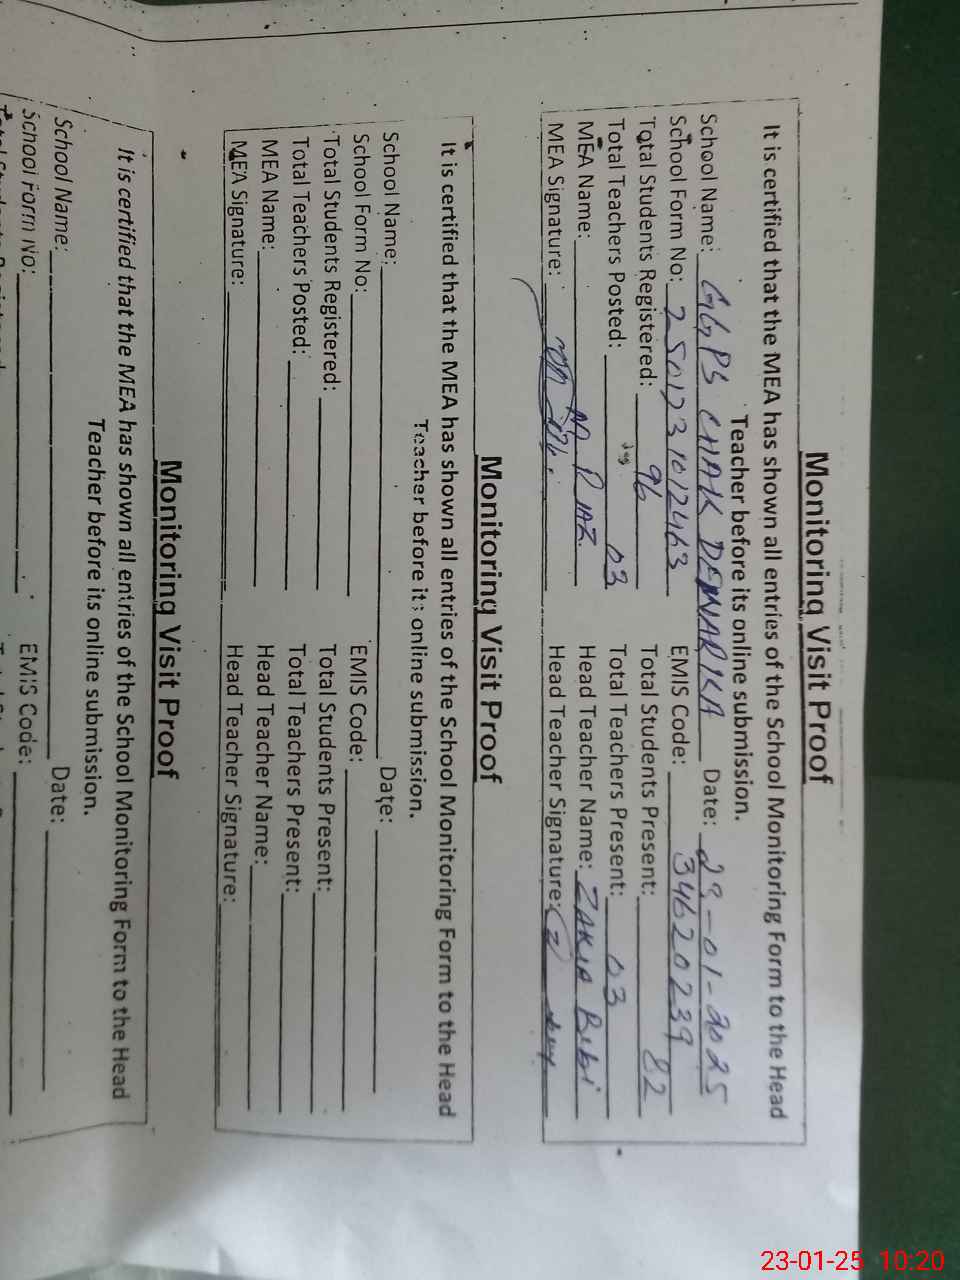 Monitoring Visit Proof
It is certified that the MEA has shown all entries of the School Monitoring Form to the Head
Teacher before its online submission.
School Name: GGPS CHAK DEWARIKA Date: 23-01-2025
School Form No: 2501231012463 EMIS Code: 34620239
Total Students Registered: 96 Total Students Present: 82
Total Teachers Posted: 03 Total Teachers Present: 03
MEA Name: M RIAZ Head Teacher Name: ZAKIA Bibi
MEA Signature: Head Teacher Signature:
Monitoring Visit Proof
It is certified that the MEA has shown all entries of the School Monitoring Form to the Head
Teacher before its online submission.
School Name: Date:
School Form No: EMIS Code:
Total Students Registered: Total Students Present:
Total Teachers Posted: Total Teachers Present:
MEA Name: Head Teacher Name:
MEA Signature: Head Teacher Signature:
Monitoring Visit Proof
It is certified that the MEA has shown all entries of the School Monitoring Form to the Head
Teacher before its online submission.
School Name: Date:
School Form No: EMIS Code:
23-01-25 10:20